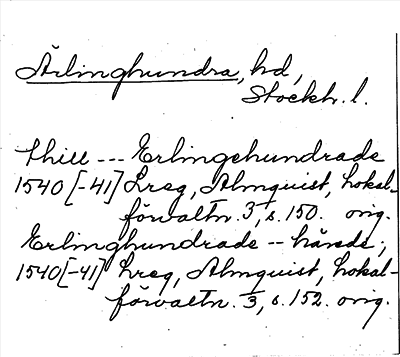 Ärlinghundra, hd,
Stockh. l.
thill --- Erlingehundrade
1540 [-41] Lreg, Almquist, Lokal-
förvaltn. 3, s. 150. orig.
Erlinghundrade -- härede;
1540 [-41] Lreg, Almquist, Lokal-
förvaltn. 3, s. 152. orig.